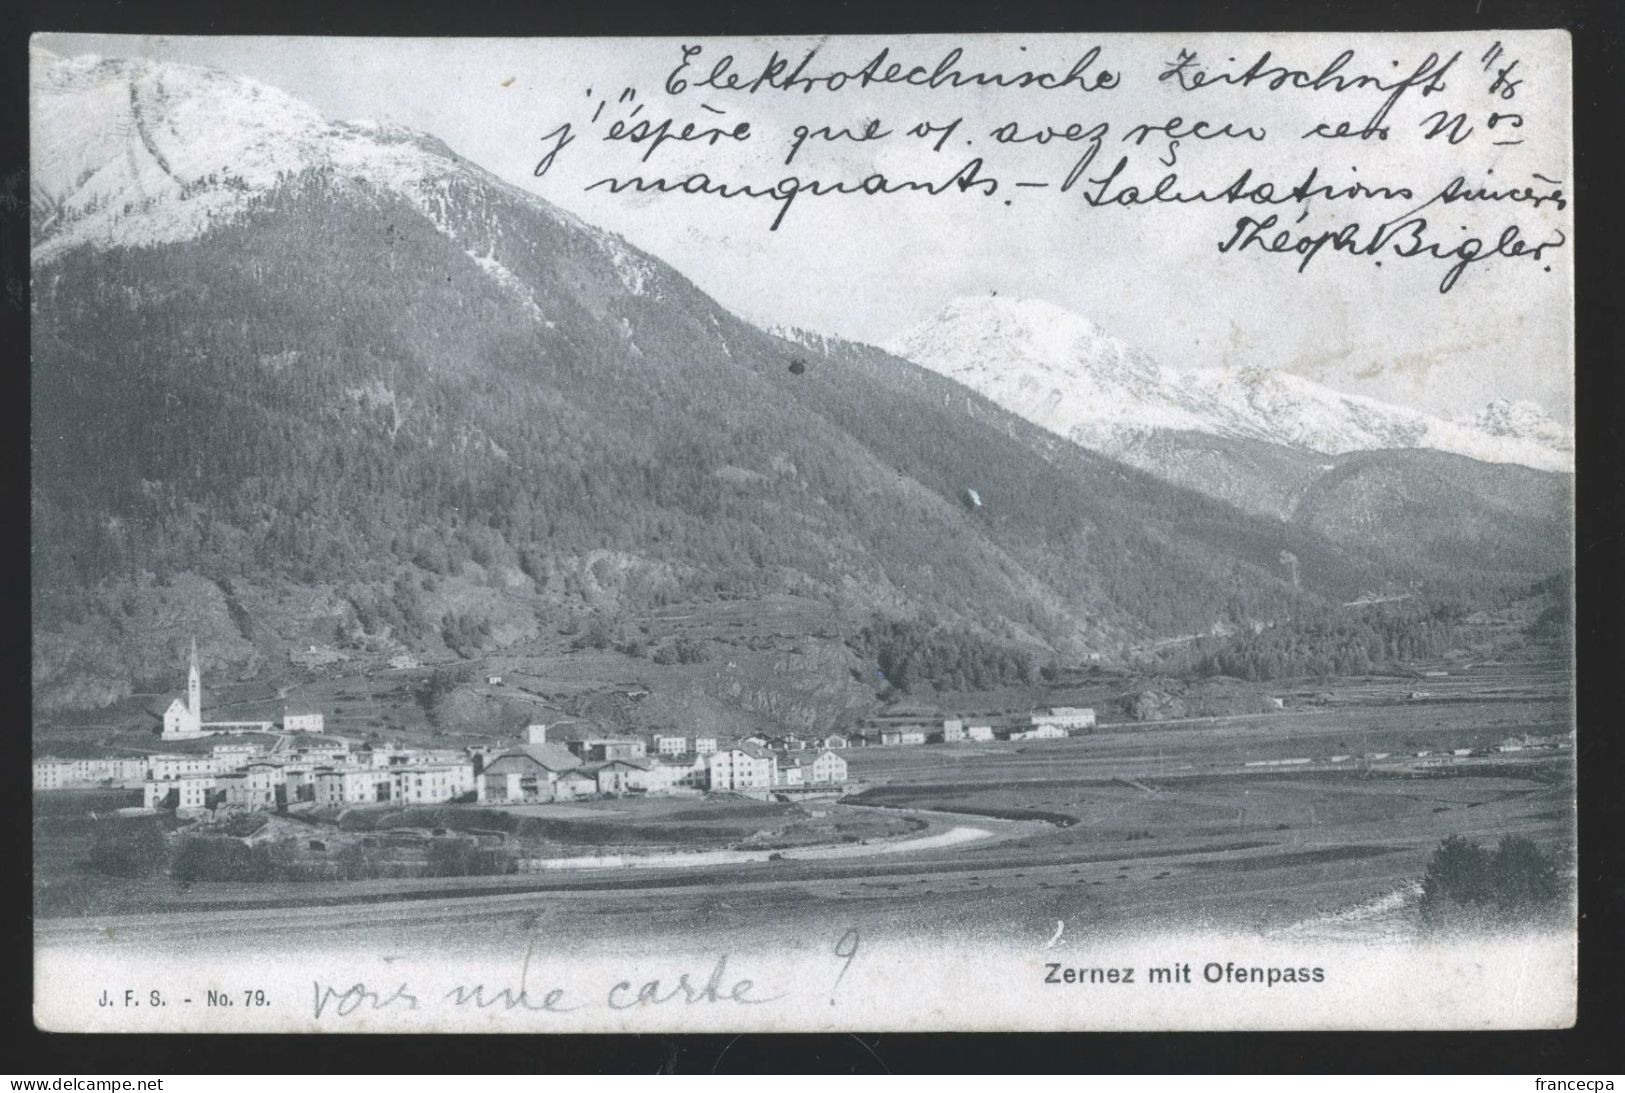 „Elektrotechnische Zeitschrift" &
j'éspère que v. avez reçu ces Nos
manquants. — Salutations sincères
Théoph. Bigler.
Zernez mit Ofenpass
J. F. S. - No. 79.
voir une carte !
www.delcampe.net
francecpa